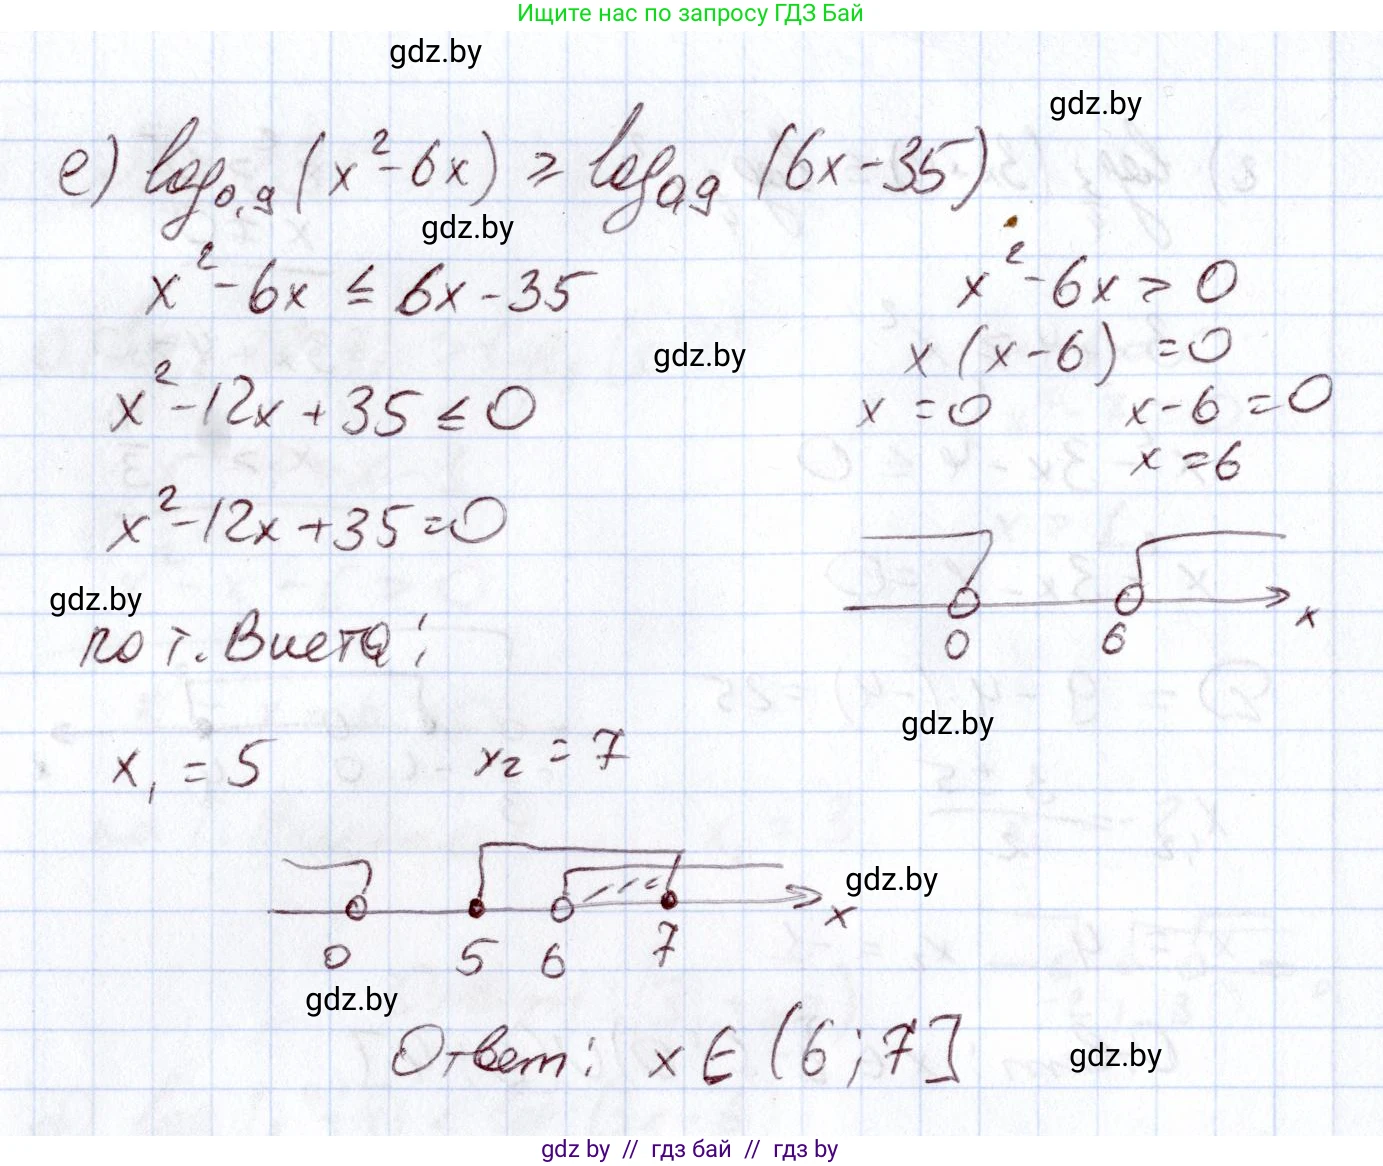 Ищите нас по запросу ГДЗ Бай
gdz.by
gdz.by
е) log₀,₉ (x² - 6x) ≥ log₀,₉ (6x - 35)
gdz.by
x² - 6x ≤ 6x - 35
x² - 6x > 0
gdz.by
x (x - 6) = 0
x² - 12x + 35 ≤ 0
x = 0 x - 6 = 0
x = 6
x² - 12x + 35 = 0
gdz.by
0 6 x
по т. Виета:
gdz.by
x₁ = 5 x₂ = 7
gdz.by
0 5 6 7 x
gdz.by
Ответ: x ∈ (6; 7]
gdz.by
gdz by // гдз бай // gdz by